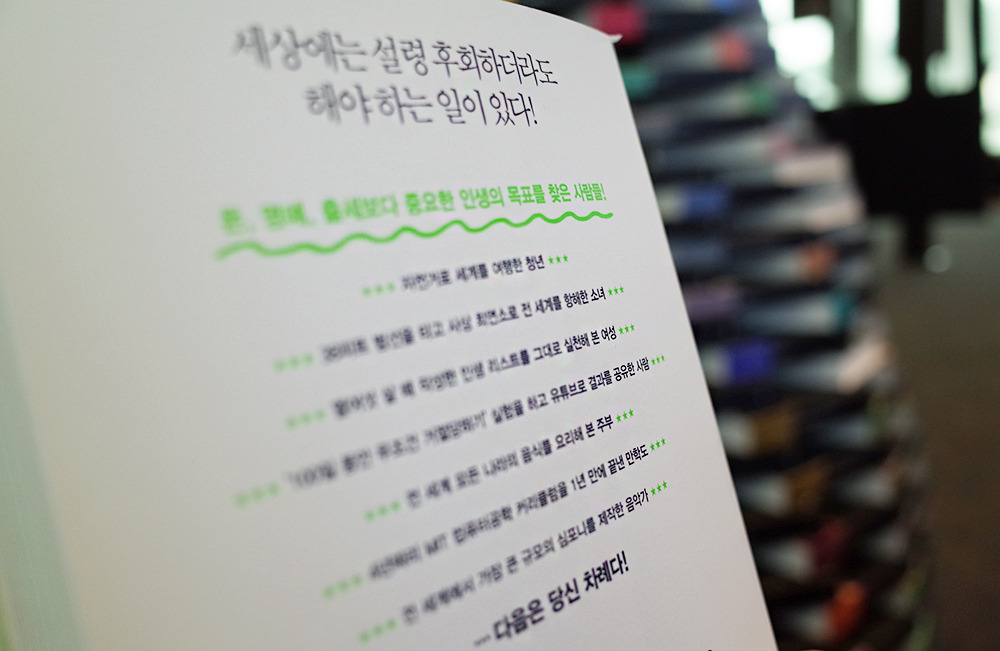 세상에는 설령 후회하더라도
해야 하는 일이 있다!
돈, 명예, 출세보다 중요한 인생의 목표를 찾은 사람들!
*** 자전거로 세계를 여행한 청년 ***
*** 요트를 타고 사상 최연소로 전 세계를 항해한 소녀 ***
*** 살 때 작성한 인생 리스트를 그대로 실천해 본 여성 ***
*** '100일 동안 무조건 거절당하기' 실험을 하고 유튜브로 결과를 공유한 사람 ***
*** 전 세계 모든 나라의 음식을 요리해 본 주부 ***
*** 4년제의 MIT 컴퓨터공학 커리큘럼을 1년 만에 끝낸 만학도 ***
*** 전 세계에서 가장 큰 규모의 심포니를 제작한 음악가 ***
…다음은 당신 차례다!